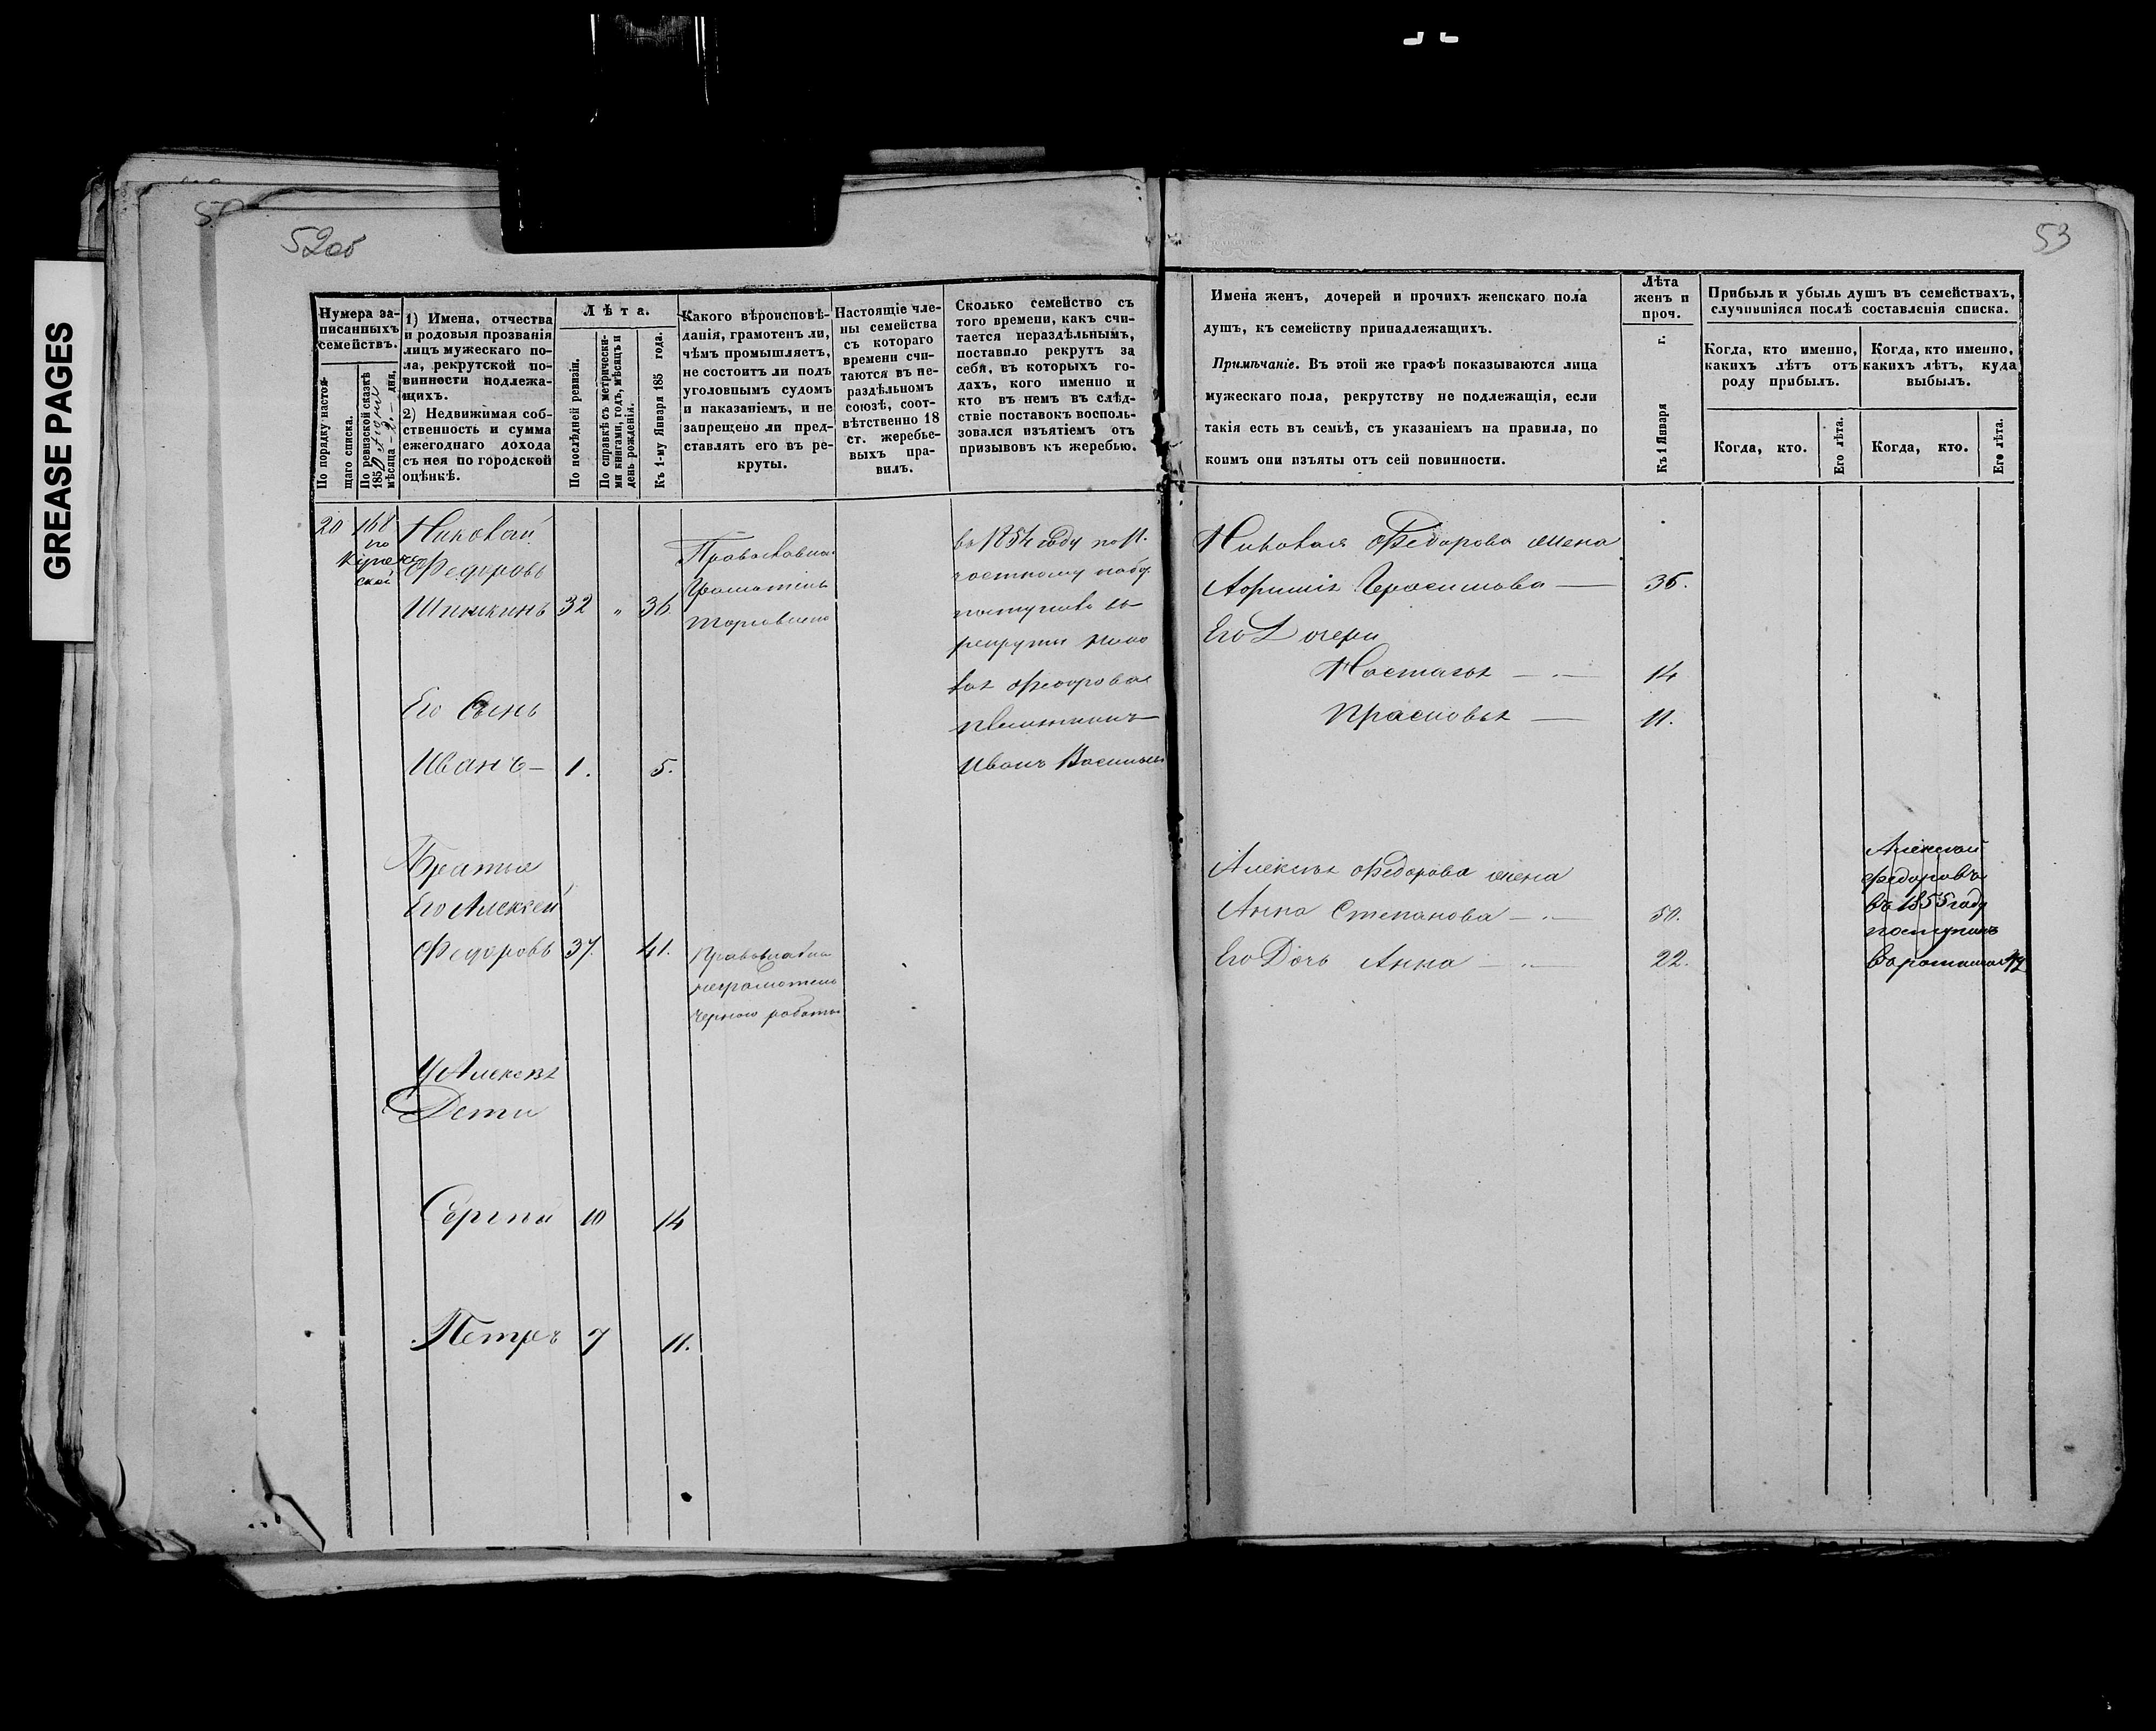 GREASE PAGES
52об
53
Нумера за-
писанныхъ
семействъ.
По порядку настоя-
щаго списка.
По ревизской сказкѣ
185
мѣсяца 2 дня.
1) Имена, отчества
и родовыя прозванія
лицъ мужескаго по-
ла, рекрутской по-
винности подлежа-
щихъ.
2) Недвижимая соб-
ственность и сумма
ежегоднаго дохода
съ нея по городской
оцѣнкѣ.
Лѣта.
По послѣдней ревизіи.
По справкѣ съ метрически-
ми книгами, годъ, мѣсяцъ и
день рожденія.
Къ 1-му Января 185 года.
Какого вѣроисповѣ-
данія, грамотенъ ли,
чѣмъ промышляетъ,
не состоитъ ли подъ
уголовнымъ судомъ
и наказаніемъ, и не
запрещено ли пред-
ставлять его въ ре-
круты.
Настоящіе чле-
ны семейства
съ котораго
времени счи-
таются въ не-
раздѣльномъ
союзѣ, соот-
вѣтственно 18
ст. жеребье-
выхъ пра-
вилъ.
Сколько семейство съ
того времени, какъ счи-
тается нераздѣльнымъ,
поставило рекрутъ за
себя, въ которыхъ го-
дахъ, кого именно и
кто въ немъ въ слѣд-
ствіе поставокъ восполь-
зовался изъятіемъ отъ
призывовъ къ жеребью.
Имена женъ, дочерей и прочихъ женскаго пола
душъ, къ семейству принадлежащихъ.
Примѣчаніе. Въ этой же графѣ показываются лица
мужескаго пола, рекрутству не подлежащія, если
такія есть въ семьѣ, съ указаніемъ на правила, по
коимъ они изъяты отъ сей повинности.
Лѣта
женъ и
проч.
Къ 1 Января г.
Прибыль и убыль душъ въ семействахъ,
случившіяся послѣ составленія списка.
Когда, кто именно,
какихъ лѣтъ отъ
роду прибылъ.
Когда, кто именно,
какихъ лѣтъ, куда
выбылъ.
Когда, кто.
Его лѣта.
Когда, кто.
Его лѣта.
20
по
Николай
Федоровъ
Шишкинъ 32 " 36
Православна.
Грамотенъ
въ 1854 году по
поступилъ въ
рекруты
Федорова
Иванъ Василь
Его Сынъ
Иванъ — 1. 5.
Братья
Его Алексей
Федоровъ 37. 41.
Православна
неграмотенъ
черною работы
У Алексея
Дети
Сергей 10 14
Петръ 7 11.
Николая Федорова жена
Герасимова — 36.
Его Дочери
Настасья — 14
Прасковья — 11.
Алексея Федорова жена
Анна Степанова — 50.
Его Дочь Анна — 22.
Алексей
Федоровъ
въ 1855 году
поступилъ